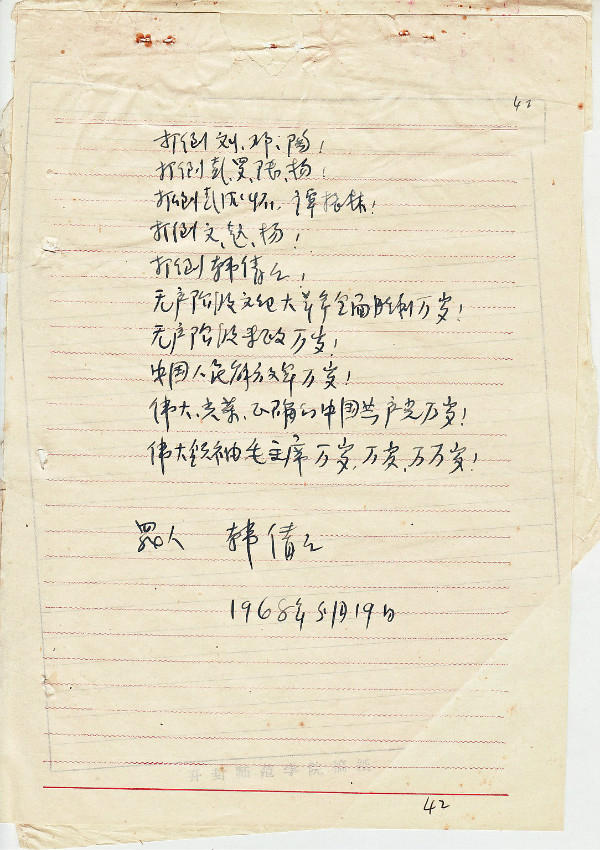 42
打倒刘、邓、陶!
打倒彭、罗、陆、杨!
打倒彭德怀、谭振林!
打倒文、赵、杨!
打倒韩倩之!
无产阶级文化大革命全面胜利万岁!
无产阶级专政万岁!
中国人民解放军万岁!
伟大、光荣、正确的中国共产党万岁!
伟大领袖毛主席万岁,万岁,万万岁!
罪人 韩倩之
1968年5月19日
开封师范学院稿纸
42